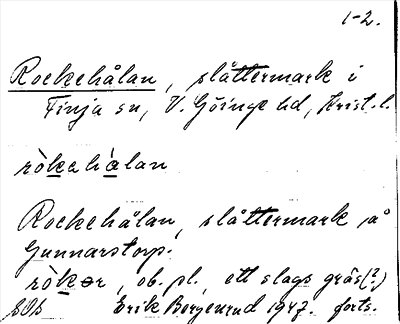 1-2.
Rockehålan, slåttermark i
Finja sn, V. Göinge hd, Krist. l.
ròkehålan
Rockehålan, slåttermark på
Gunnarstorp.
ròkər, ob. pl., ett slags gräs(?)
SOS Erik Borgenrud 1947. forts.